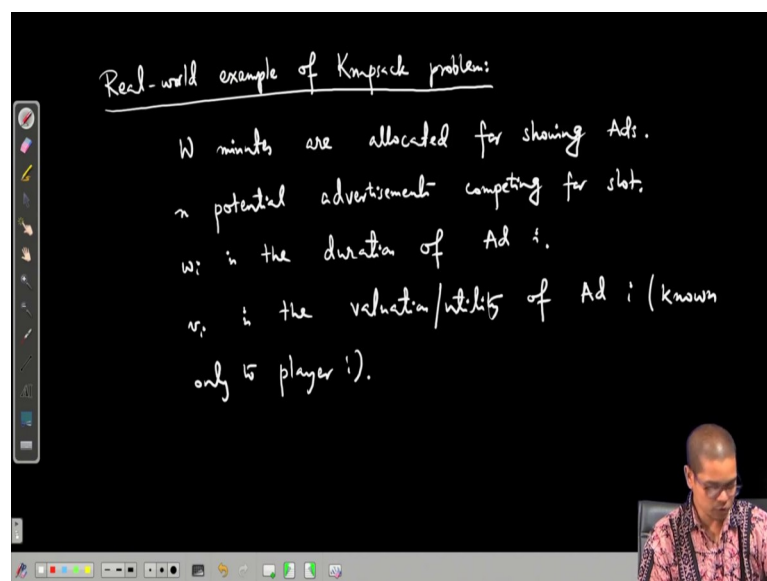 Real-world example of Knapsack problem:
W minutes are allocated for showing Ads.
n potential advertisement competing for slot.
wi is the duration of Ad i.
vi is the valuation/utility of Ad i (known
only to player i).